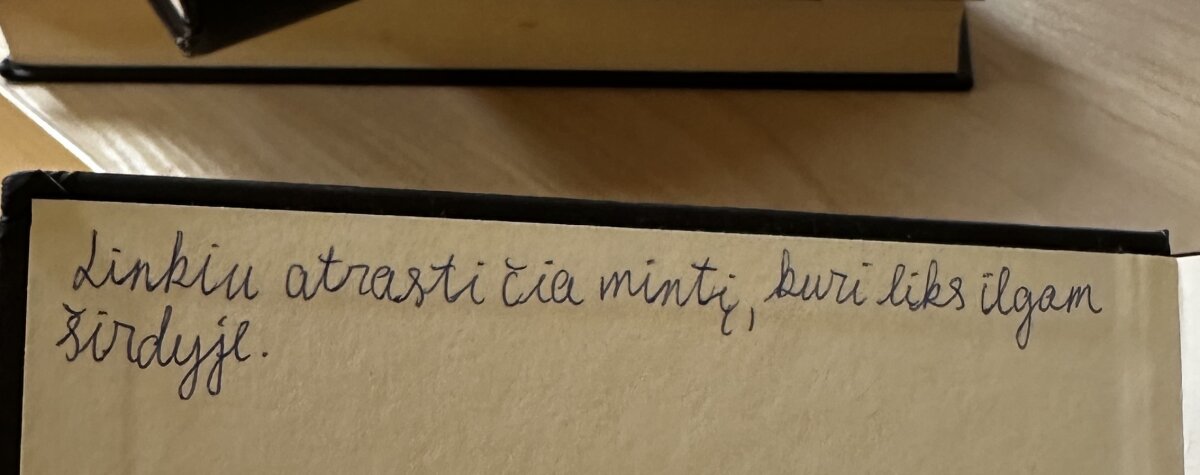 Linkiu atrasti čia mintį, kuri liks ilgam
širdyje.